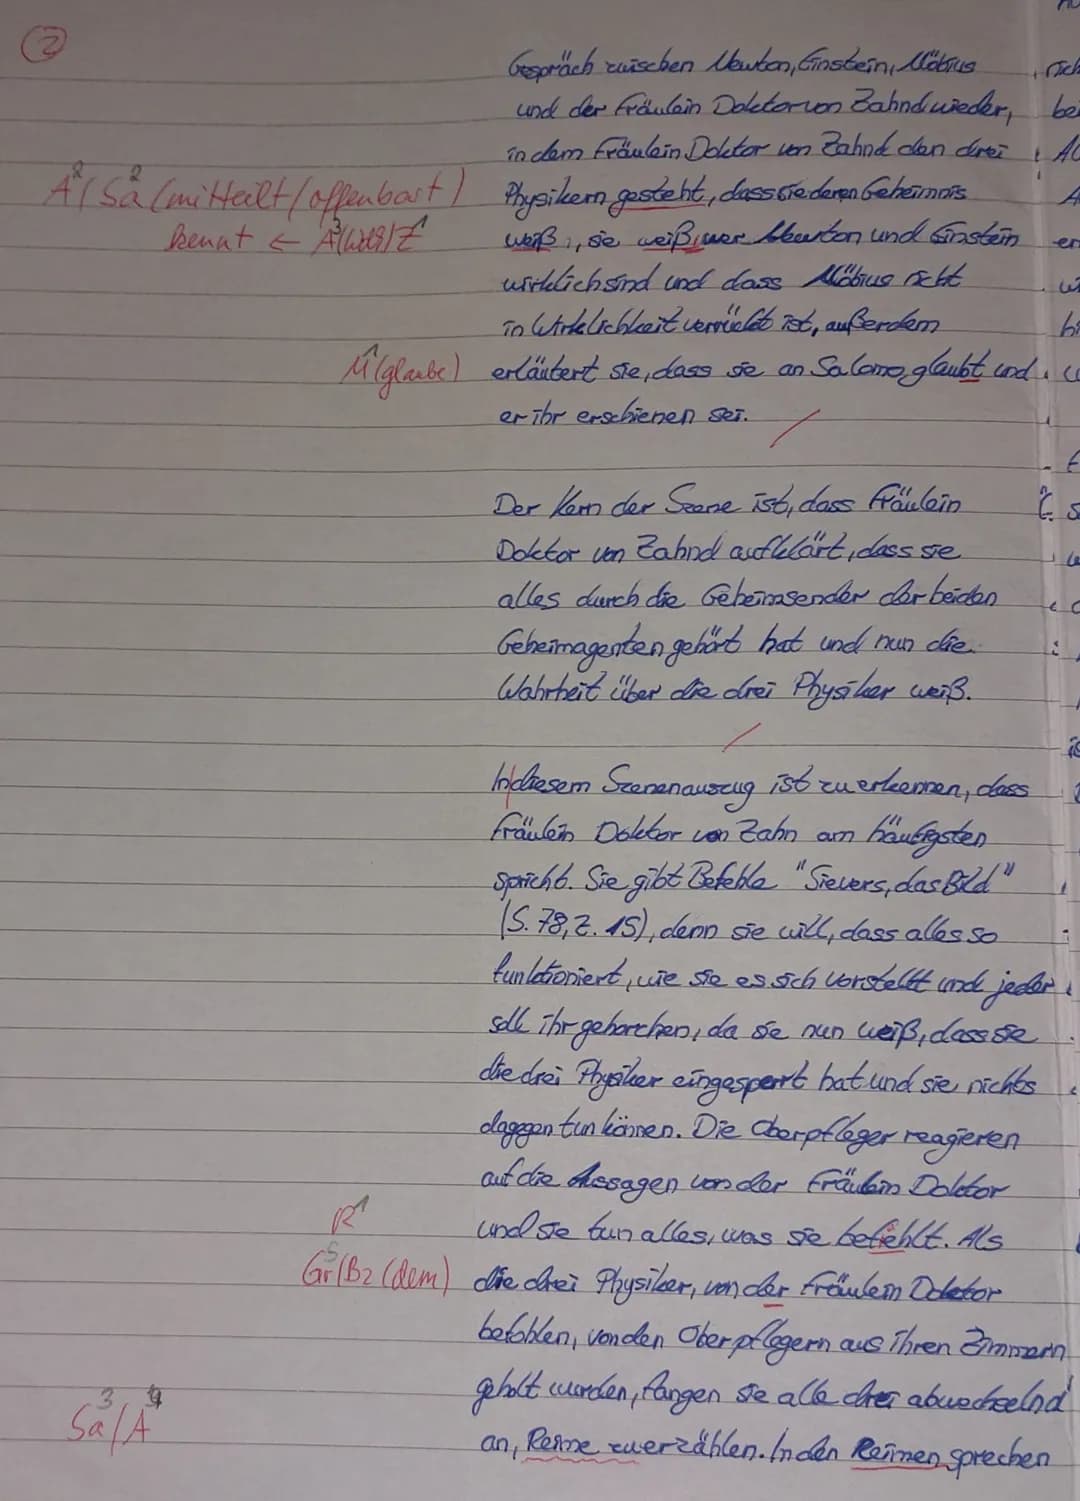 2
Gespräch zwischen Newton, Einstein, Möbius
und der Fräulein Doktor von Zahnd wieder,
in dem Fräulein Doktor von Zahnd den drei
A² / Sa² (mitteilt / offenbart) Physikern gesteht, dass sie deren Geheimnis
kennt ← A³ (Wdh) / Z¹ weiß, sie weiß, wer Newton und Einstein
wirklich sind und dass Möbius nicht
in Wirklichkeit verrückt ist, außerdem
M¹ (glaube) erläutert sie, dass sie an Salomo glaubt und
er ihr erschienen sei.
Der Kern der Szene ist, dass Fräulein
Doktor von Zahnd aufklärt, dass sie
alles durch die Geheimsender der beiden
Geheimagenten gehört hat und nun die
Wahrheit über die drei Physiker weiß.
In diesem Szenenauszug ist zu erkennen, dass
Fräulein Doktor von Zahn am häufigsten
spricht. Sie gibt Befehle "Sievers, das Bild"
(S. 78, Z. 15), denn sie will, dass alles so
funktioniert, wie sie es sich vorstellt und jeder
soll ihr gehorchen, da sie nun weiß, dass sie
die drei Physiker eingesperrt hat und sie nichts
dagegen tun können. Die Oberpfleger reagieren
auf die Aussagen von der Fräulein Doktor
R¹ und sie tun alles, was sie befiehlt. Als
Gr⁵ / Bz (dem) die drei Physiker, von der Fräulein Doktor
befohlen, von den Oberpflegern aus ihren Zimmern
geholt wurden, fangen sie alle drei abwechselnd
Sa³ / A⁴ an, Reime zu erzählen. In den Reimen sprechen